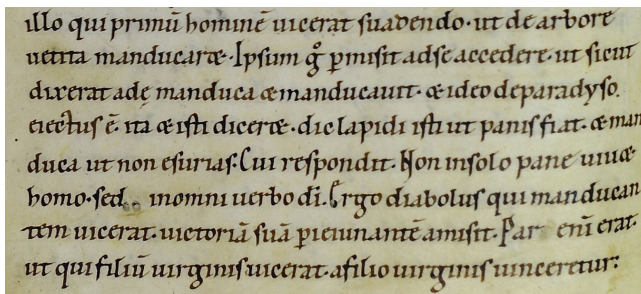 illo qui primū hominē uicerat suadendo· ut de arbore
uetita manducaret· Ipsum g̊ p̲misit adse accedere· ut sicut
dixerat adę manduca & manducauit· & ideo deparadyso
eiectus ē· ita & isti diceret· dic lapidi isti ut panis fiat· & man
duca ut non esurias· Cui respondit· Non insolo pane uiu&
homo· sed inomni uerbo dī· Ergo diabolus qui manducan
tem uicerat· uictoriā suā p̲ ieiunantē amisit· Par enī erat·
ut qui filiū uirginis uicerat· afilio uirginis uinceretur·